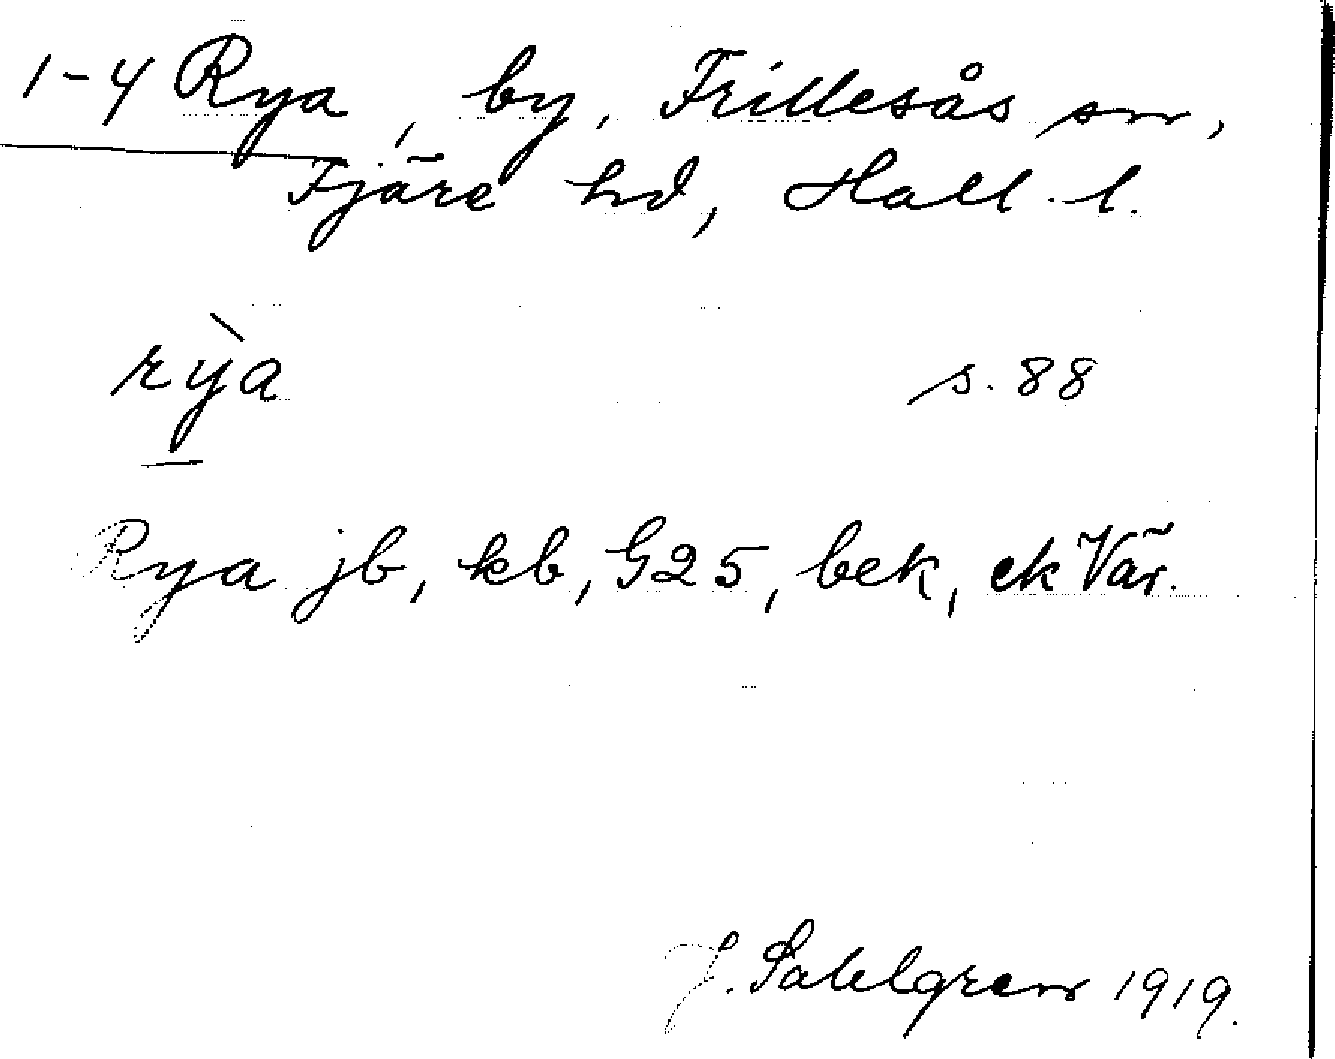 1-4 Rya, by, Frillesås sn,
Fjäre hd, Hall. l.
rỳa s. 88
Rya jb, kb, G25, bek, ek Vär.
J. Sahlgren 1919.